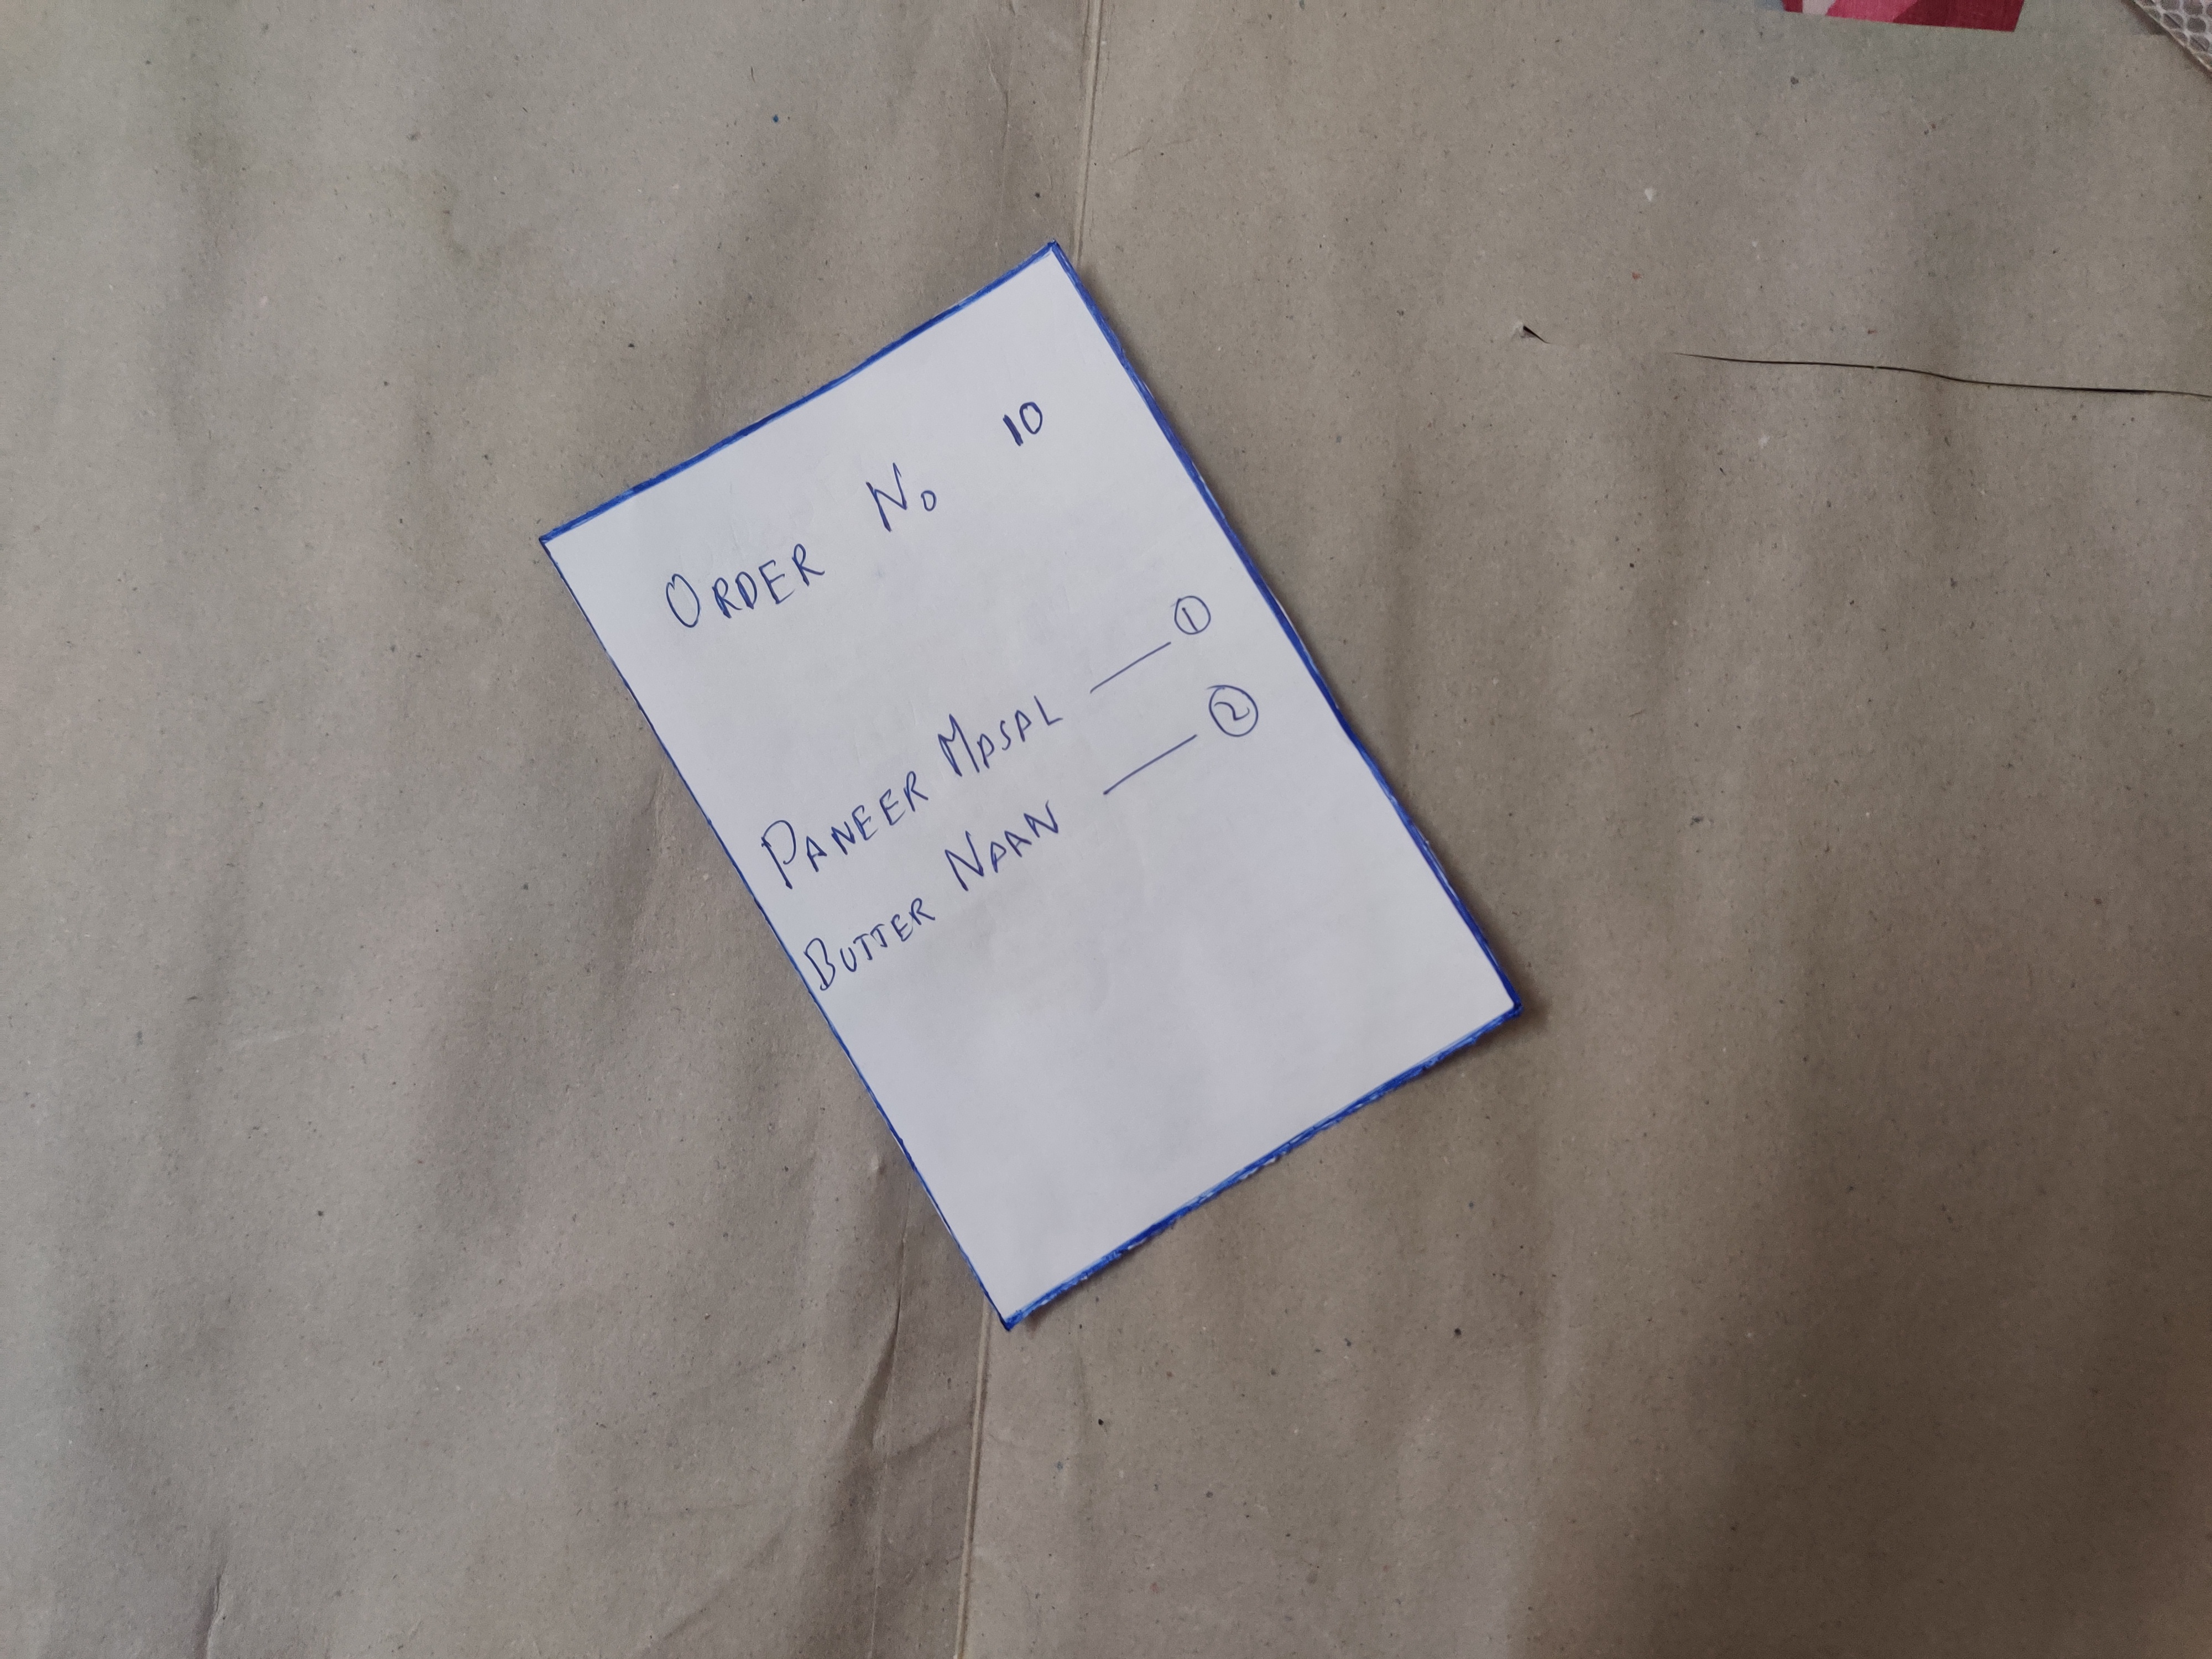 ORDER No 10
PANEER MASAL — 1
BUTTER NAAN — 2